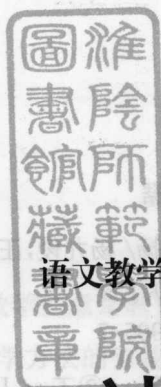 淮陰師範學院
圖書館藏書章
语文教学